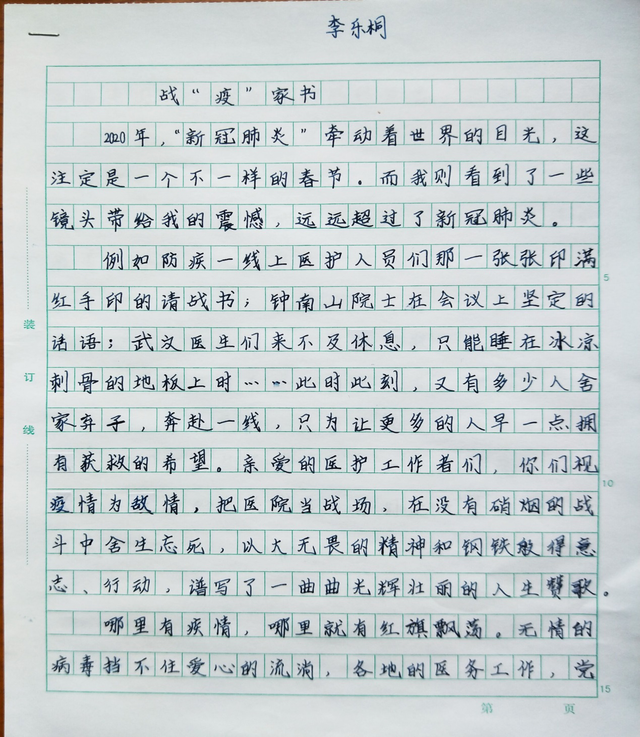 一
李乐桐
战“疫”家书
2020年，“新冠肺炎”牵动着世界的目光，这
注定是一个不一样的春节。而我则看到了一些
镜头带给我的震憾，远远超过了新冠肺炎。
例如防疾一线上医护人员们那一张张印满
红手印的请战书；钟南山院士在会议上坚定的
话语；武汉医生们来不及休息，只能睡在冰凉
刺骨的地板上时……此时此刻，又有多少人舍
家弃子，奔赴一线，只为让更多的人早一点拥
有获救的希望。亲爱的医护工作者们，你们视
疫情为敌情，把医院当战场，在没有硝烟的战
斗中舍生忘死，以大无畏的精神和钢铁般得意
志、行动，谱写了一曲曲光辉壮丽的人生赞歌。
哪里有疾情，哪里就有红旗飘荡。无情的
病毒挡不住爱心的流淌，各地的医务工作，党
装
订
线
5
10
15
第 页